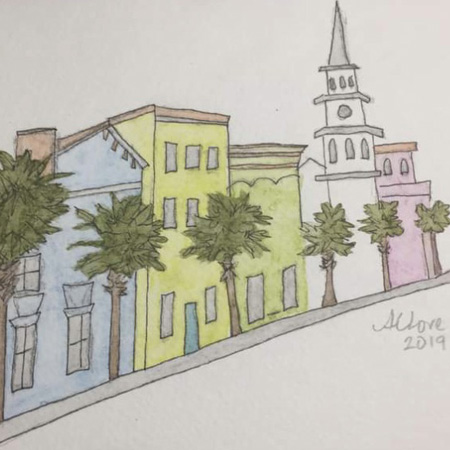 A Love
2019